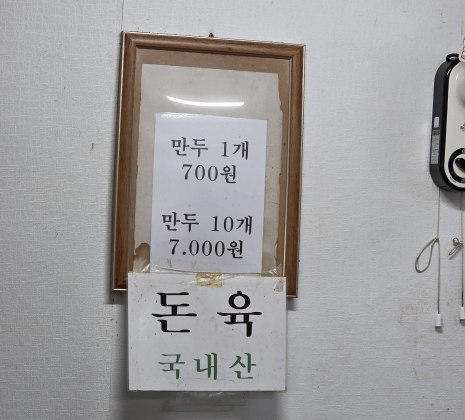 만두 1개
700원
만두 10개
7.000원
돈육
국내산